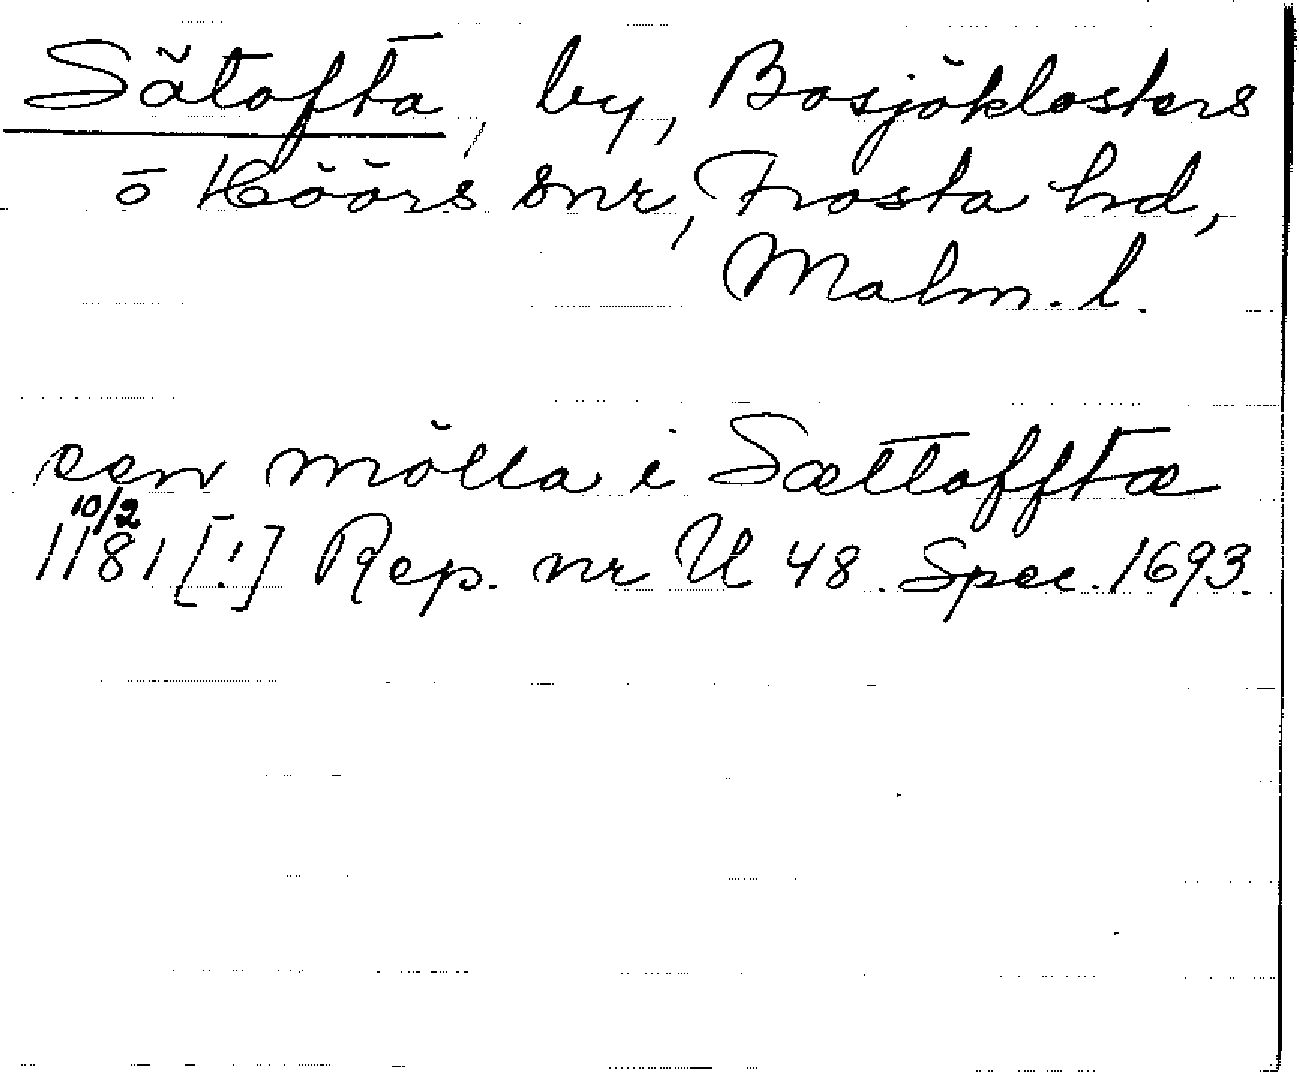 Sätofta, by, Bosjöklosters
o Höörs snr, Frosta hd,
Malm. l.
een mölla i Sættofftæ
10/2
1181 [!] Rep. nr U 48. Spec. 1693.